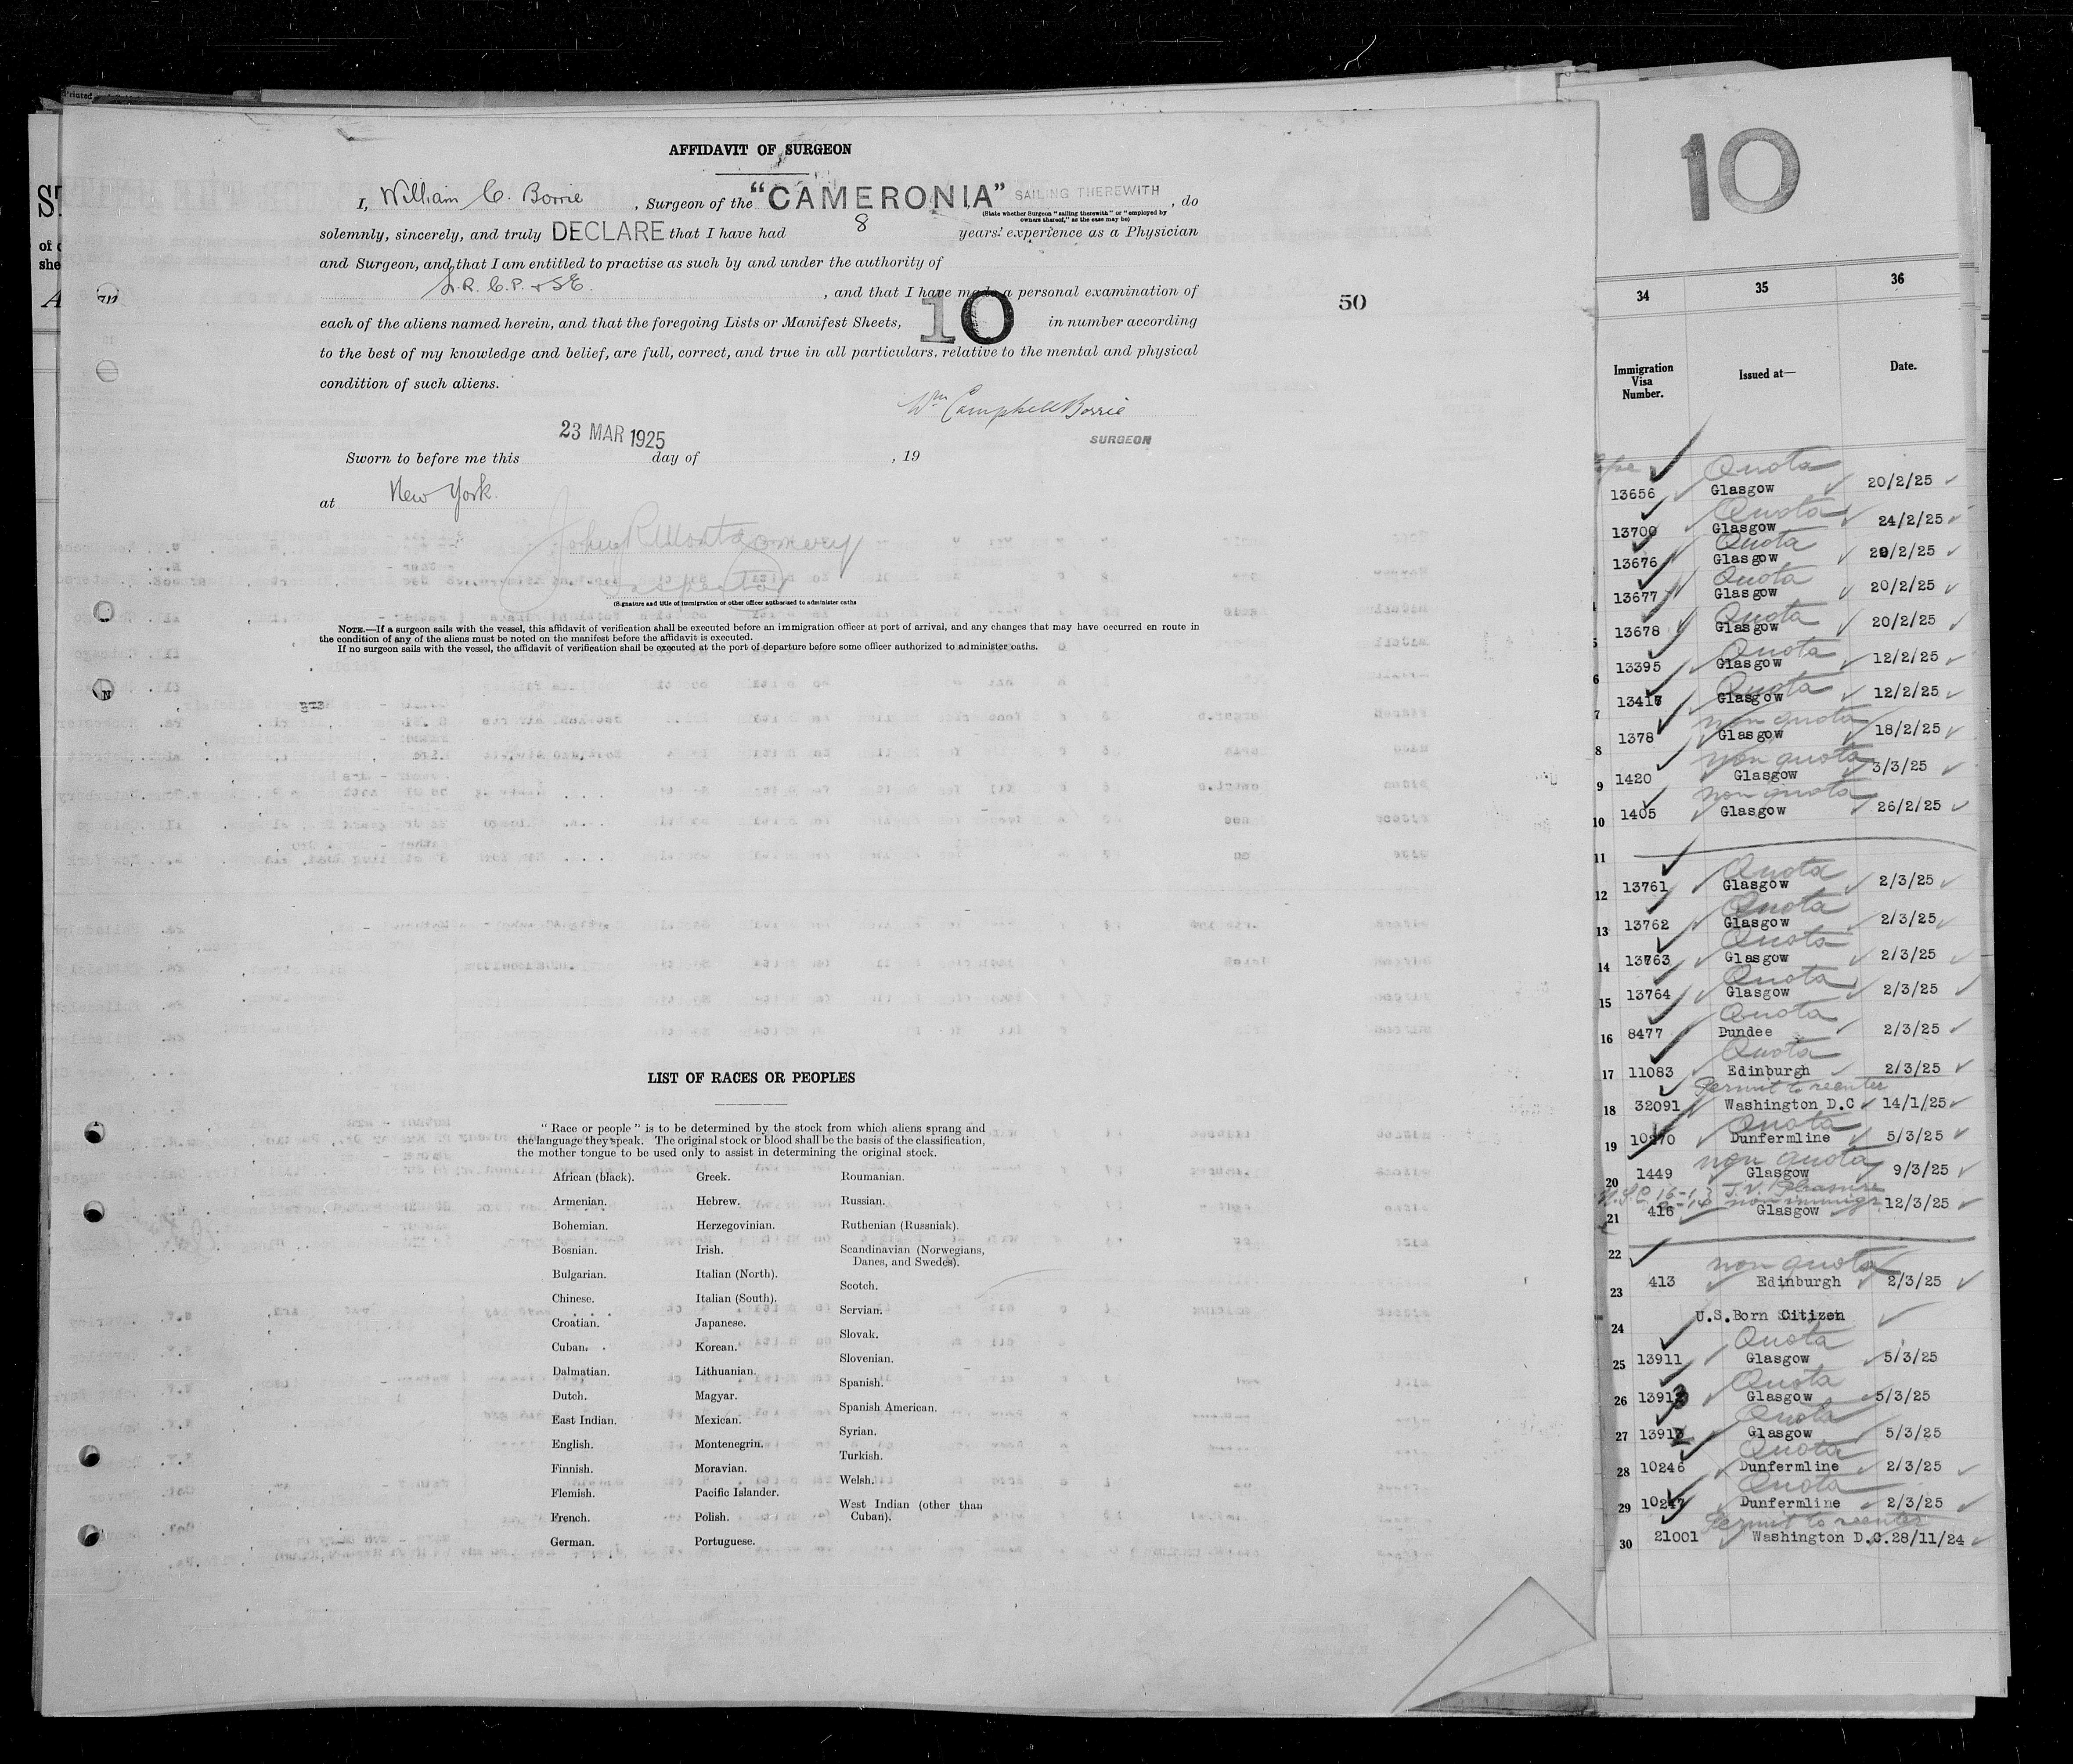 AFFIDAVIT OF SURGEON
I, William C. Borrie, Surgeon of the "CAMERONIA" SAILING THEREWITH, do
(State whether Surgeon "sailing therewith" or "employed by
owners thereof," as the case may be)
solemnly, sincerely, and truly DECLARE that I have had 8 years' experience as a Physician
and Surgeon, and that I am entitled to practise as such by and under the authority of
L.R.C.P. & S.E., and that I have made a personal examination of
each of the aliens named herein, and that the foregoing Lists or Manifest Sheets, 10 in number according
to the best of my knowledge and belief, are full, correct, and true in all particulars, relative to the mental and physical
condition of such aliens.
50
Wm Campbell Borrie
SURGEON
23 MAR 1925
Sworn to before me this day of , 19
at New York.
John R Montgomery
Inspector
(Signature and title of immigration or other officer authorized to administer oaths
NOTE.—If a surgeon sails with the vessel, this affidavit of verification shall be executed before an immigration officer at port of arrival, and any changes that may have occurred en route in
the condition of any of the aliens must be noted on the manifest before the affidavit is executed.
If no surgeon sails with the vessel, the affidavit of verification shall be executed at the port of departure before some officer authorized to administer oaths.
LIST OF RACES OR PEOPLES
"Race or people" is to be determined by the stock from which aliens sprang and
the language they speak. The original stock or blood shall be the basis of the classification,
the mother tongue to be used only to assist in determining the original stock.
African (black).
Armenian.
Bohemian.
Bosnian.
Bulgarian.
Chinese.
Croatian.
Cuban.
Dalmatian.
Dutch.
East Indian.
English.
Finnish.
Flemish.
French.
German.
Greek.
Hebrew.
Herzegovinian.
Irish.
Italian (North).
Italian (South).
Japanese.
Korean.
Lithuanian.
Magyar.
Mexican.
Montenegrin.
Moravian.
Pacific Islander.
Polish.
Portuguese.
Roumanian.
Russian.
Ruthenian (Russniak).
Scandinavian (Norwegians,
Danes, and Swedes).
Scotch.
Servian.
Slovak.
Slovenian.
Spanish.
Spanish American.
Syrian.
Turkish.
Welsh.
West Indian (other than
Cuban).
10
34 35 36
Immigration
Visa
Number.
Issued at—
Date.
Quota
13656 Glasgow 20/2/25
Quota
13700 Glasgow 24/2/25
Quota
13676 Glasgow 20/2/25
Quota
13677 Glasgow 20/2/25
Quota
5 13678 Glasgow 20/2/25
Quota
6 13395 Glasgow 12/2/25
Quota
7 13418 Glasgow 12/2/25
non quota
8 1378 Glasgow 18/2/25
non quota
9 1420 Glasgow 3/3/25
non quota
10 1405 Glasgow 26/2/25
11
Quota
12 13761 Glasgow 2/3/25
Quota
13 13762 Glasgow 2/3/25
Quota
14 13763 Glasgow 2/3/25
Quota
15 13764 Glasgow 2/3/25
Quota
16 8477 Dundee 2/3/25
Quota
17 11083 Edinburgh 2/3/25
Permit to reenter
18 32091 Washington D.C 14/1/25
Quota
19 Dunfermline 5/3/25
non quota
20 1449 Glasgow 9/3/25
T.V. Pleasure
non immigr
21 416 Glasgow 12/3/25
22
non quota
23 413 Edinburgh 2/3/25
24 U.S.Born Citizen
Quota
25 13911 Glasgow 5/3/25
Quota
26 13913 Glasgow 5/3/25
Quota
27 13912 Glasgow 5/3/25
Quota
28 10246 Dunfermline 2/3/25
Quota
29 10247 Dunfermline 2/3/25
Permit to reenter
30 21001 Washington D.C. 28/11/24